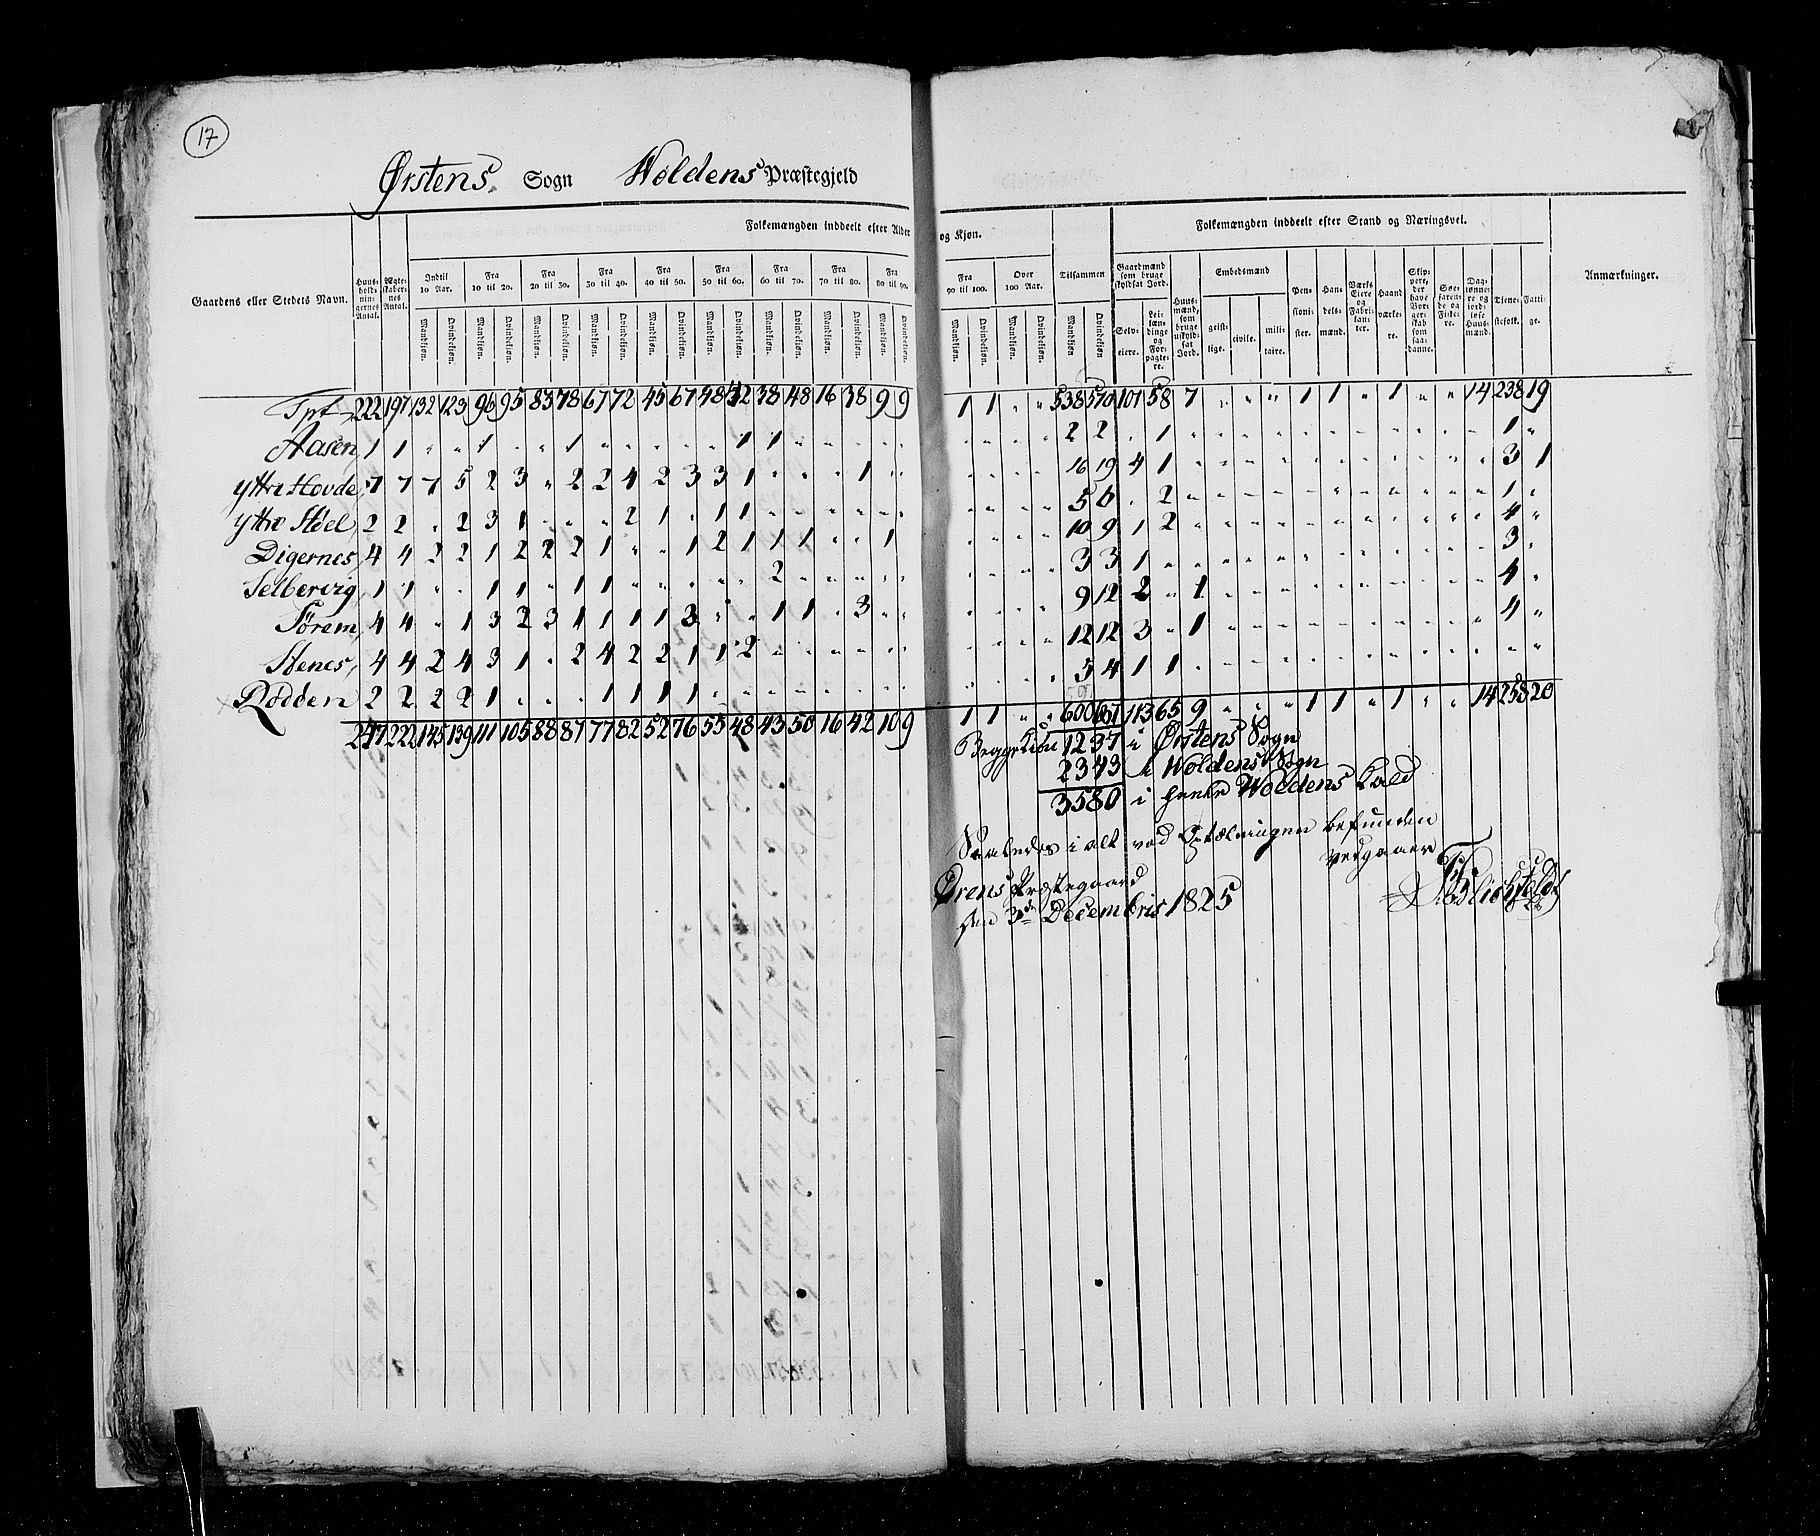 17
Ørstens Sogn Woldens Præstegjeld
Folkemængden inddeelt efter Alder og Kjøn.
Folkemængden inddeelt efter Stand og Næringsvei.
Gaardens eller Stedets Navn. Huusholdningernes Antal. Ægteskabernes Antal. Indtil 10 Aar. Fra 10 til 20. Fra 20 til 30. Fra 30 til 40. Fra 40 til 50. Fra 50 til 60. Fra 60 til 70. Fra 70 til 80. Fra 80 til 90. Fra 90 til 100. Over 100 Aar. Tilsammen
Mandkjøn. Qvindekjøn. Mandkjøn. Qvindekjøn. Mandkjøn. Qvindekjøn. Mandkjøn. Qvindekjøn. Mandkjøn. Qvindekjøn. Mandkjøn. Qvindekjøn. Mandkjøn. Qvindekjøn. Mandkjøn. Qvindekjøn. Mandkjøn. Qvindekjøn. Mandkjøn. Qvindekjøn. Mandkjøn. Qvindekjøn. Mandkjøn Qvindekjøn
Gaardmænd som bruge skyldsat Jord. Selveiere. Leilændinge og Forpagtere. Huusmænd, som bruge uskyldsat Jord. Embedsmænd geistlige. civile. militaire. Pensionister. Handelsmænd. Værks Eiere og Fabrikanter. Haandværkere. Skippere, der have Borgerskab som saadanne. Søefarende og Fiskere. Daglønnere og jordløse Huusmænd. Tjenestefolk. Fattige. Anmærkninger.
Tpt 222 197 132 123 96 95 83 78 67 72 45 67 48 42 38 48 16 38 9 9 1 1 " " 538 570 101 58 7 " " " 1 1 " 1 " " 14 238 19
Aasen, 1 1 " " 1 " " 1 " " " " " 1 1 " " " " " " " " " 2 2 " 1 " " " " " " " " " " " 1 "
yttre Hovde, 7 7 7 5 2 3 " 2 2 4 2 3 3 1 " " " 1 " " " " " " 16 19 4 1 " " " " " " " " " " " 3 1
yttre Støel, 2 2 " 2 3 1 " " " 2 1 " 1 1 " " " " " " " " " " 5 6 " 2 " " " " " " " " " " " 1 "
Digernes, 4 4 2 2 1 2 2 2 1 " " 1 2 1 1 1 " " 1 " " " " " 10 9 1 2 " " " " " " " " " " " 4 "
Selbervig, 1 1 " " 1 1 " 1 1 " " " " " 2 " " " " " " " " " 3 3 1 " " " " " " " " " " " " 3 "
Sørem, 4 4 " 1 3 2 3 1 1 1 1 3 " " 1 1 " 3 " " " " " " 9 12 2 " 1 " " " " " " " " " " 4 "
Stenes, 4 4 2 4 3 1 " 2 4 2 2 1 1 2 " " " " " " " " " " 12 12 3 " 1 " " " " " " " " " " 4 "
Rødden 2 2 2 2 1 " " " 1 1 1 1 " " " " " " " " " " " " 5 4 1 1 " " " " " " " " " " " " "
247 222 145 139 111 105 88 87 77 82 52 76 55 48 43 50 16 42 10 9 1 1 " " 600 637 113 65 9 " " " 1 1 " 1 " " 14 258 20
Begge Kiøn 1237 i Ørstens Sogn
2343 i Woldens Sogn
3580 i heele Woldens Kald
Saaledes i alt ved Optælningen befunden
vedgaaer
Ørens Præstegaard
den 3de Decembris 1825